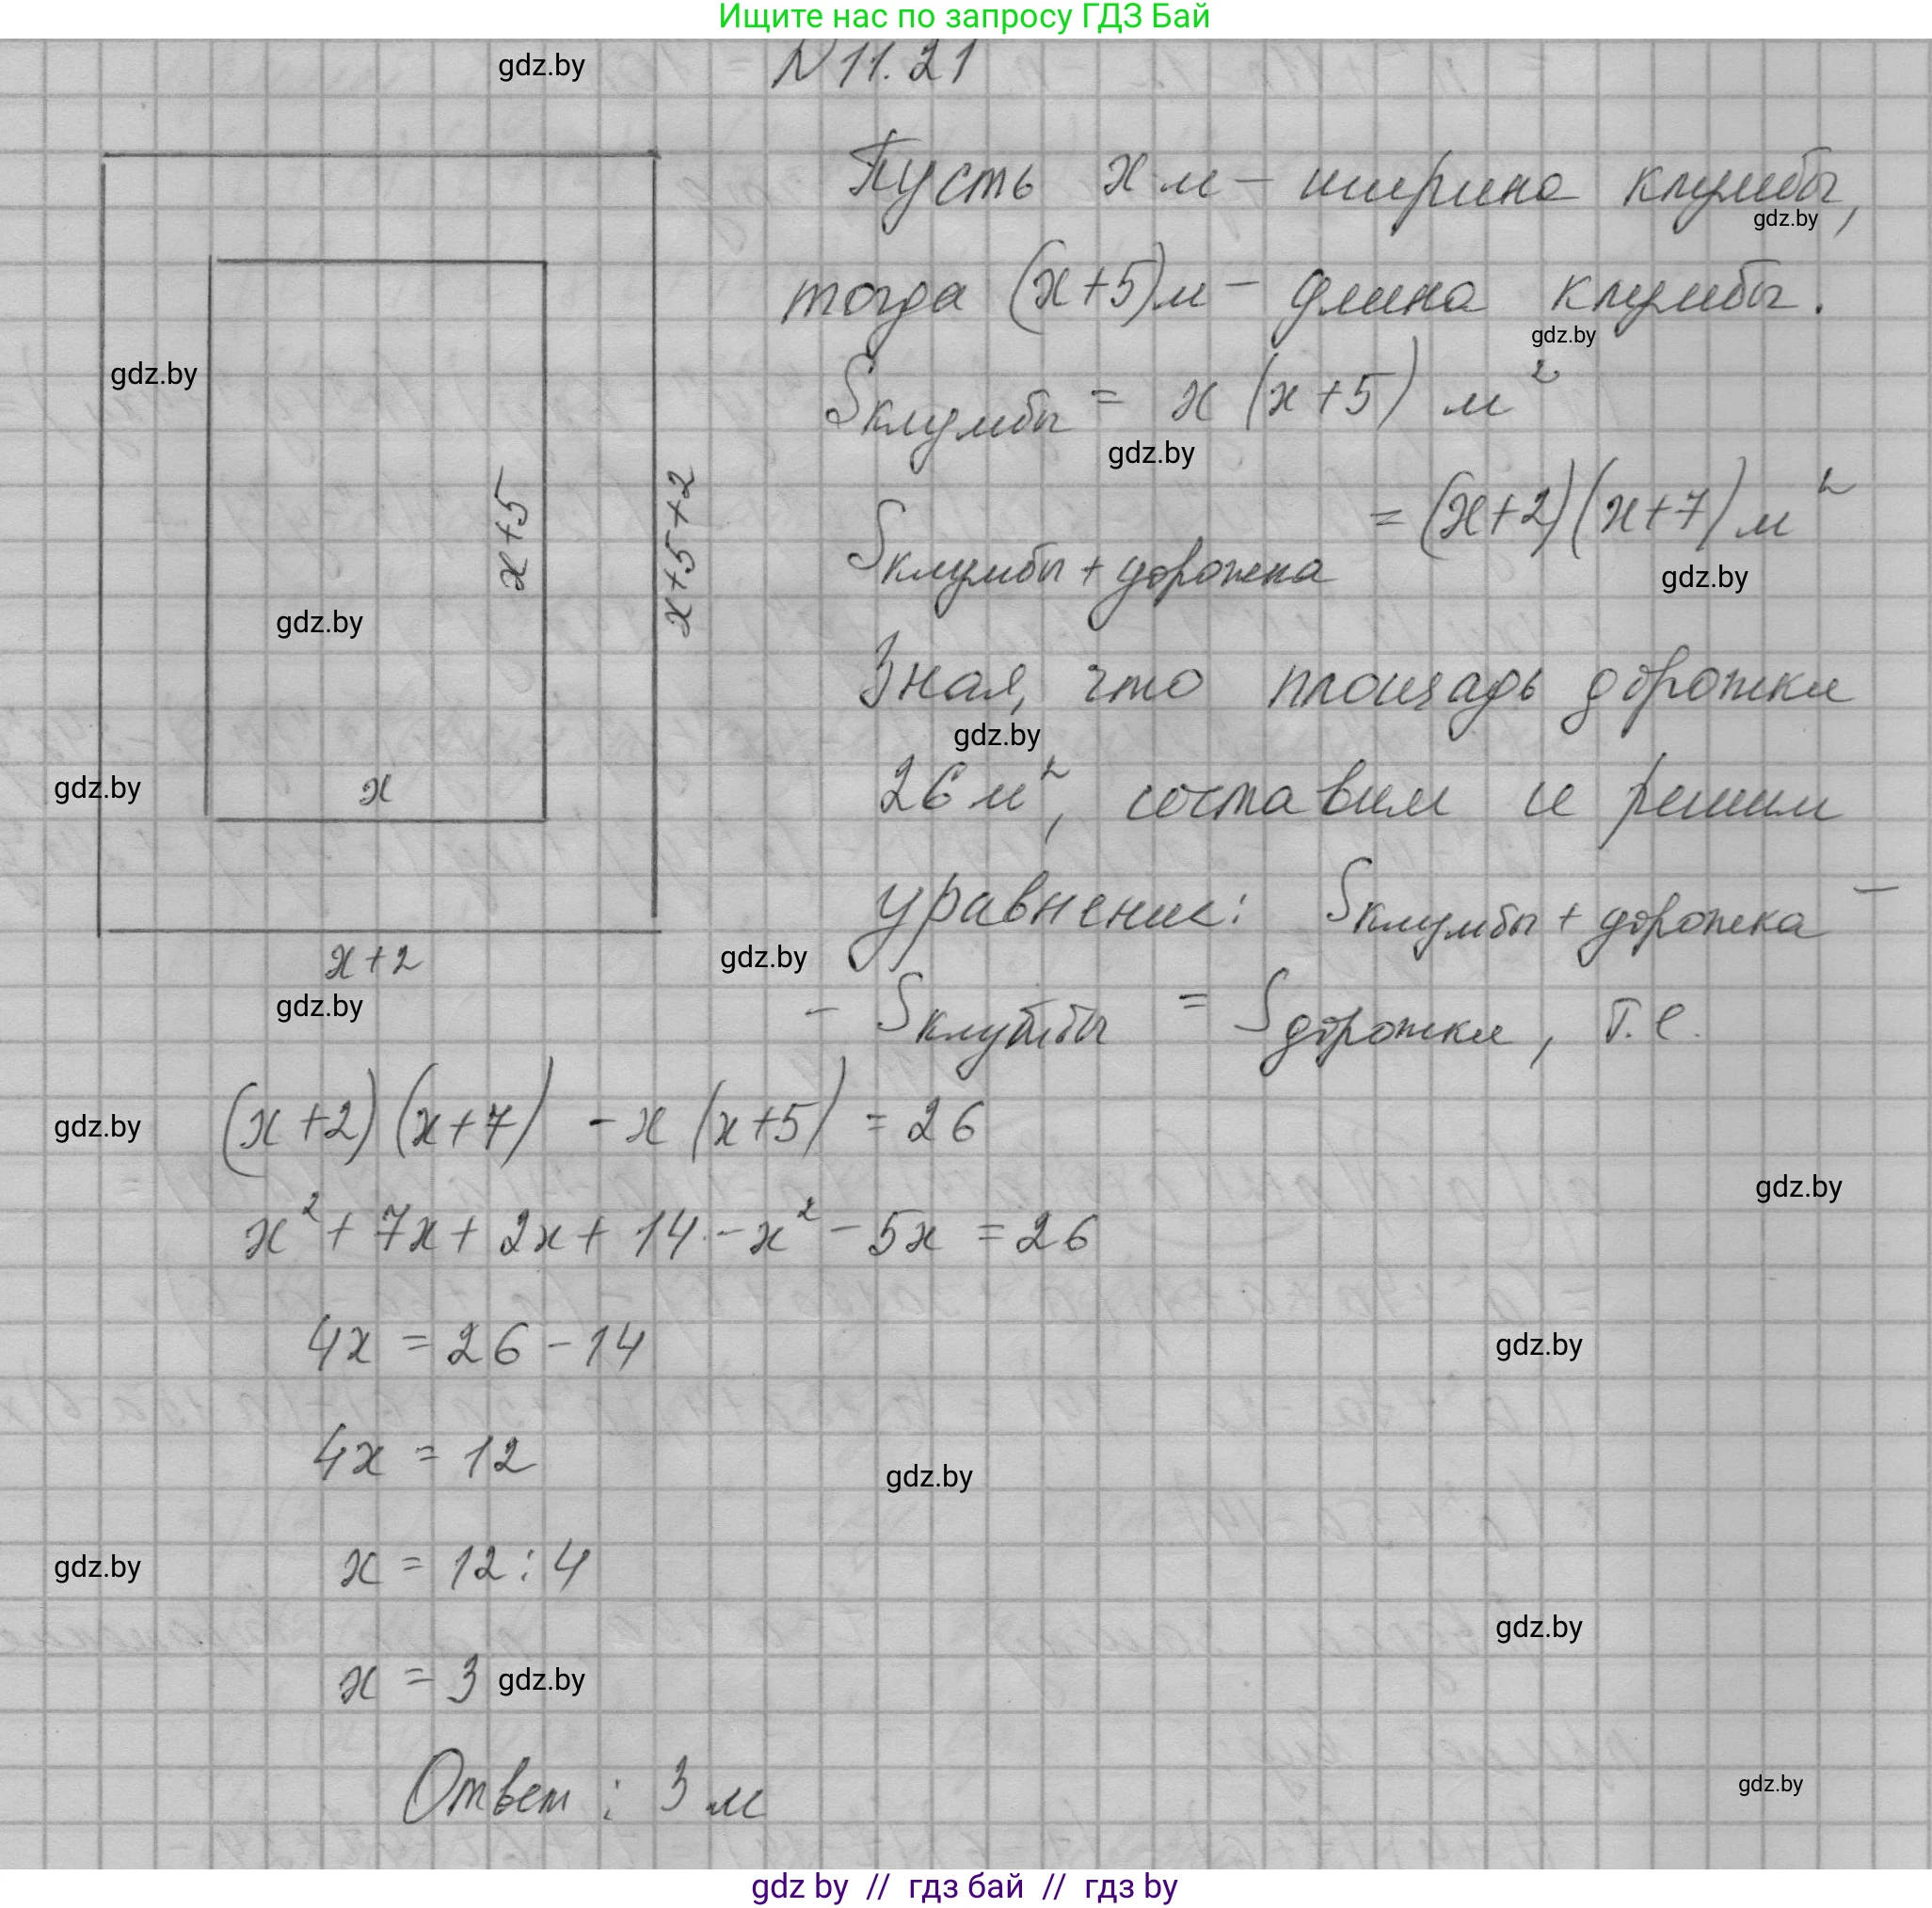 Ищите нас по запросу ГДЗ Бай
gdz.by
N 11.21
Пусть x м – ширина клумбы,
gdz.by
тогда (x+5)м – длина клумбы.
gdz.by
gdz.by
Sклумбы = x (x+5) м²
gdz.by
x+5
x+5+2
Sклумбы + дорожка = (x+2)(x+7) м²
gdz.by
gdz.by
Зная, что площадь дорожки
gdz.by
gdz.by
x
26 м², составим и решим
уравнение: Sклумбы + дорожка –
x+2
gdz.by
gdz.by
– Sклумбы = Sдорожки, т.е.
gdz.by
(x+2)(x+7) - x (x+5) = 26
gdz.by
x² + 7x + 2x + 14 - x² - 5x = 26
4x = 26 - 14
gdz.by
4x = 12
gdz.by
gdz.by
x = 12 : 4
gdz.by
x = 3
gdz.by
Ответ : 3 м
gdz.by
gdz by // гдз бай // гдз by